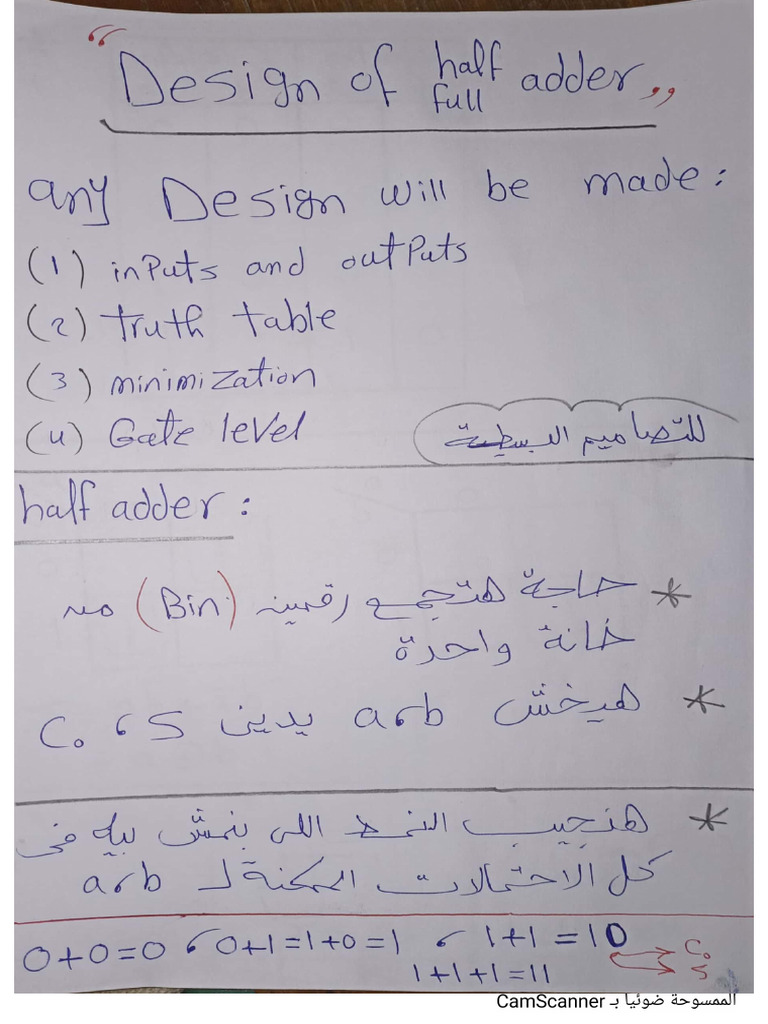 " Design of half full adder "
any Design will be made:
(1) inputs and outputs
(2) truth table
(3) minimization
(4) Gate level
للتصاميم البسيطة
half adder:
* حاجة هتجمع رقمين (Bin) من
خانة واحدة
* هيخش a,b يدينى S , C₀
* هنجيب النمط اللى بنمش بيه فى
كل الاحتمالات الممكنة لـ a,b
0+0=0 , 0+1=1+0=1 , 1+1=10 C₀
1+1+1=11 S
الممسوحة ضوئيا بـ CamScanner